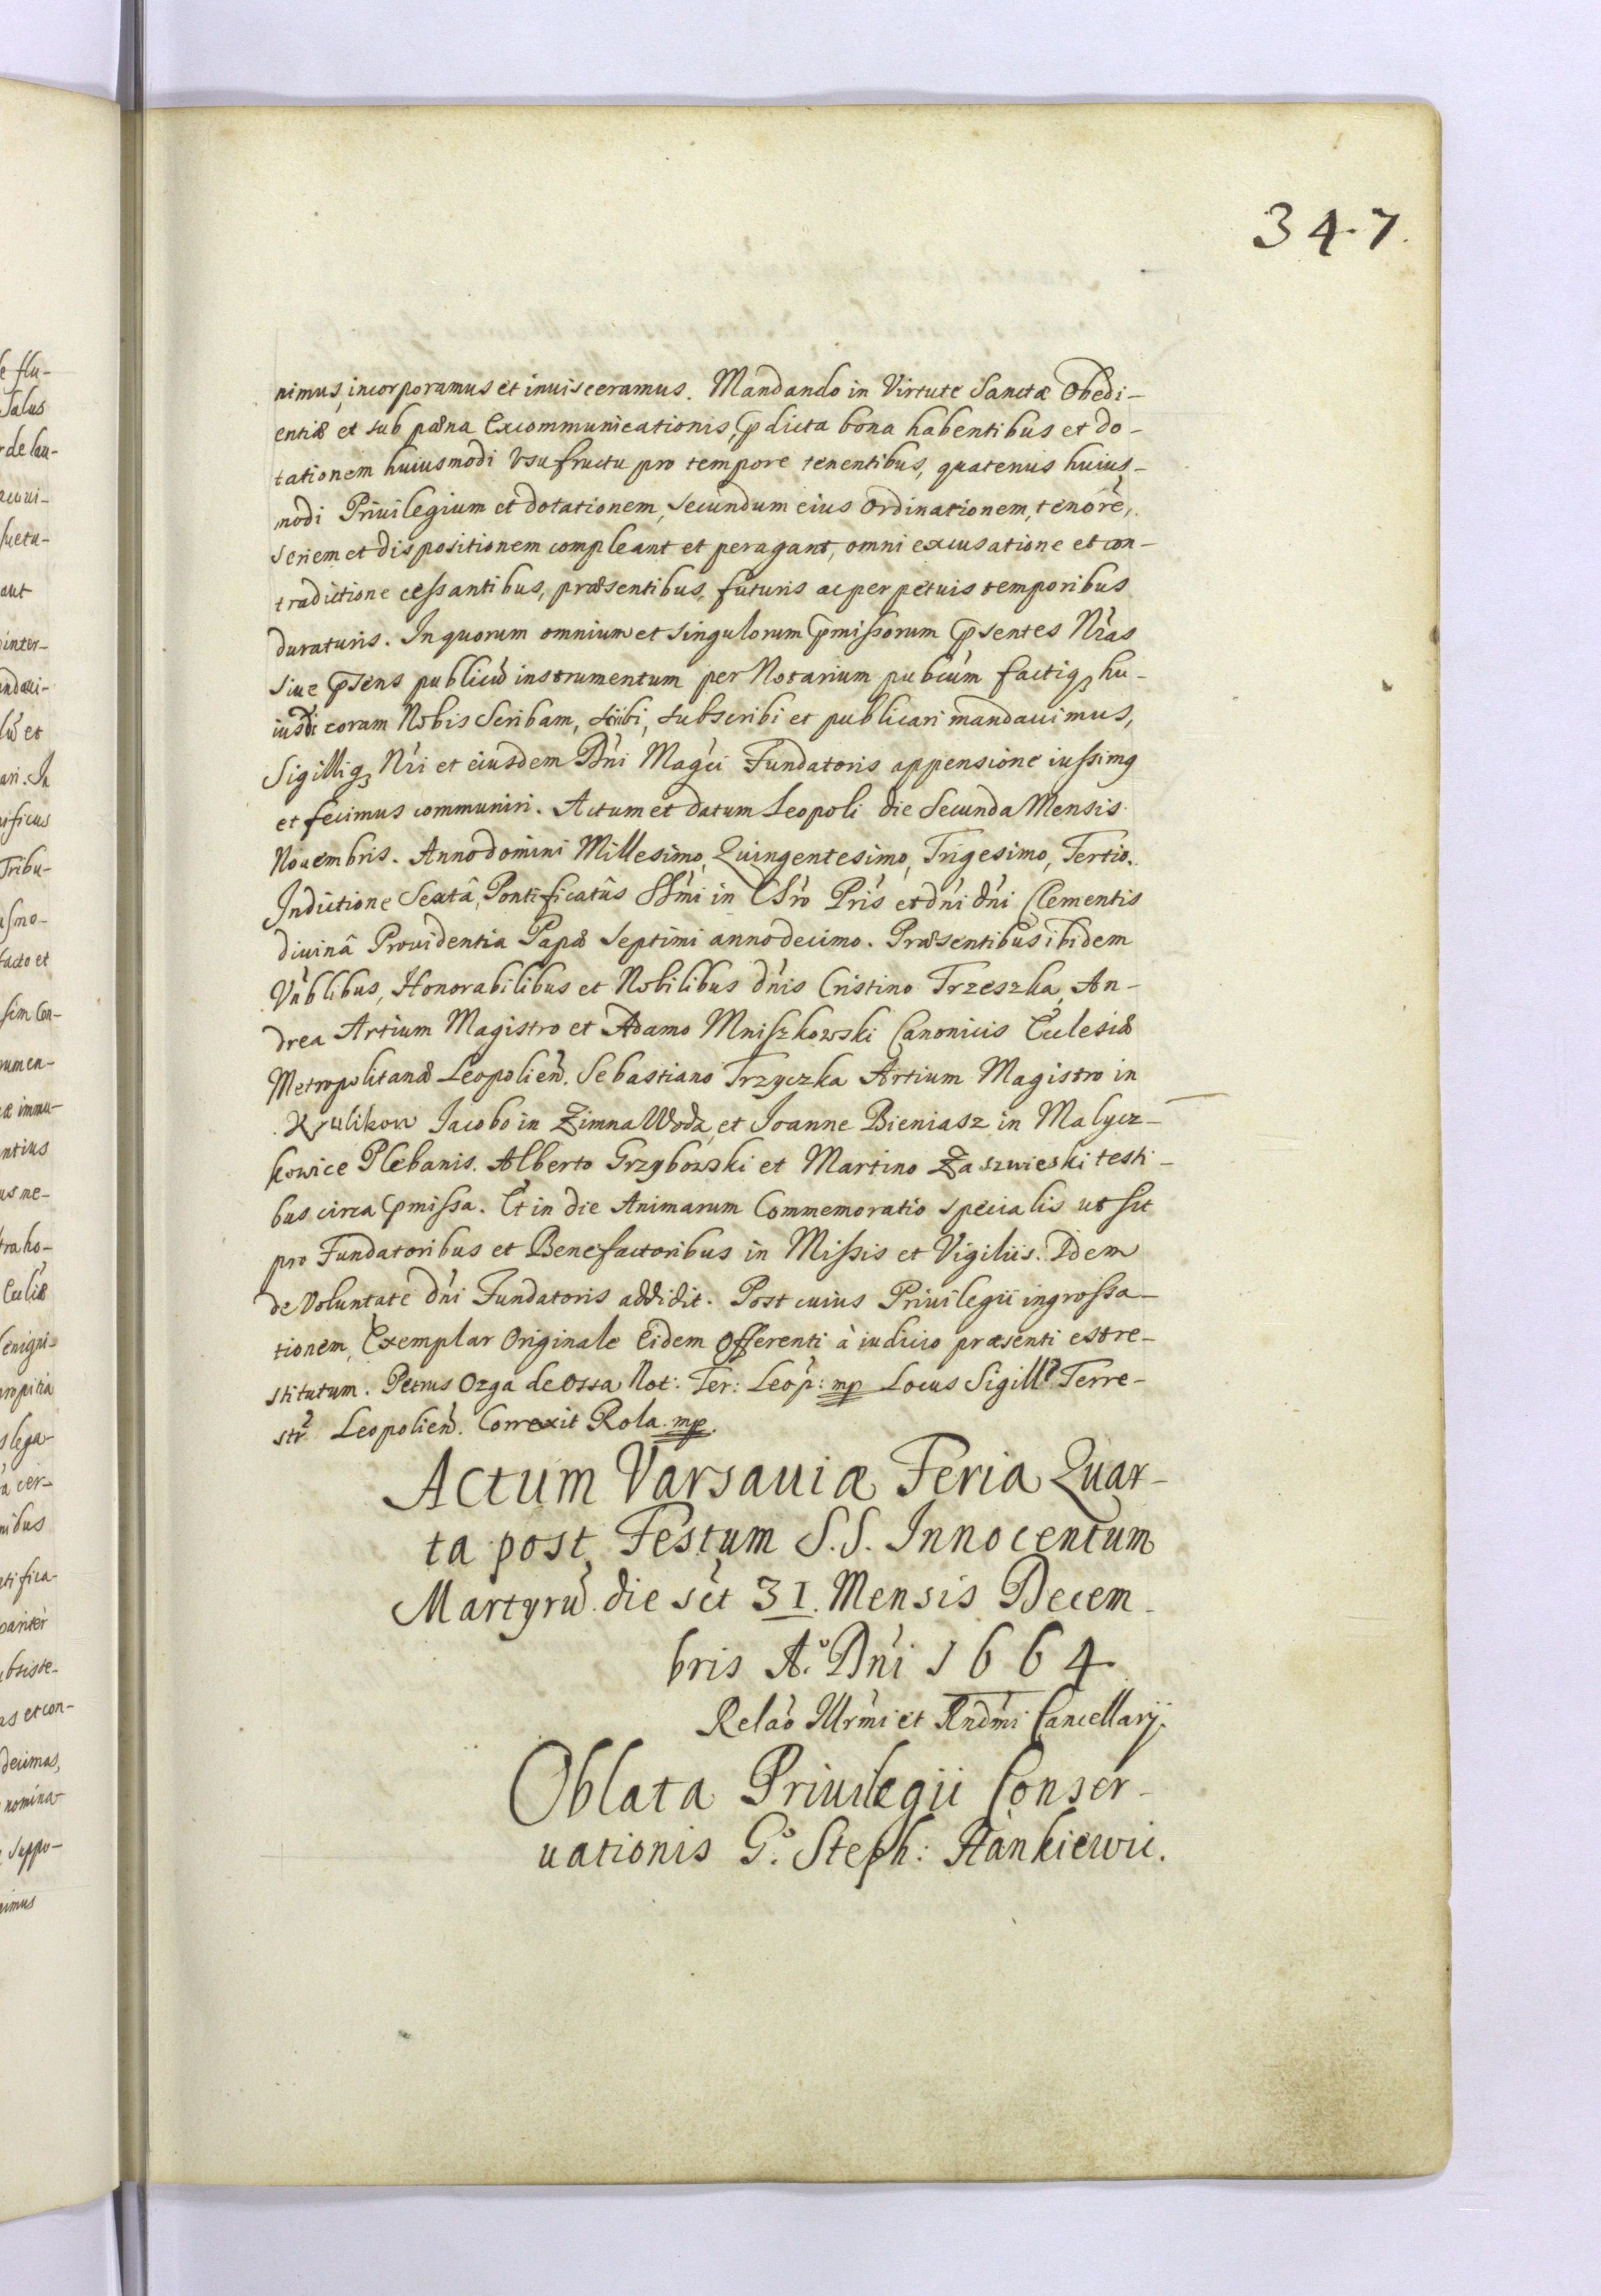 347.
nimus, incorporamus et inuisceramus. Mandando in Virtute Sanctæ Obedi-
entiæ et sub pæna Excommunicationis, p̃dicta bona habentibus et do-
tationem huiusmodi Vsufructu pro tempore tenentibus, quatenus huius-
modi Priuilegium et dotationem, secundum eius Ordinationem, tenorẽ,
seriem et dispositionem compleant et peragant, omni excusatione et con-
tradictione cessantibus, præsentibus, futuris ac perpetuis temporibus
duraturis. In quorum omnium et singulorum p̃missorum p̃sentes Nr̃as
siue p̃sens publicũ instrumentum per Notarium pubcũm factiq₃ hu-
iusdi coram Nobis Scribam, scribi, subscribi et publicari mandauimus,
Sigilliq₃ Nr̃i et eiusdem Dñi Magci Fundatoris appensione iussimq
et fecimus communiri. Actum et datum Leopoli die Secunda Mensis
Nouembris. Anno domini Millesimo, Quingentesimo, Trigesimo, Tertio.
Indictione Sextâ, Pontificatûs SSm̃i in CSr̃o Pr̃is et dñi dñi Clementis
diuinâ Prouidentia Papæ Septimi anno decimo. Præsentibus ibidem
Vñblibus, Honorabilibus et Nobilibus dñis Cristino Trzeszka, An-
drea Artium Magistro et Adamo Mniszkowski Canonicis Ecclesiæ
Metropolitanæ Leopolieñ. Sebastiano Trzyczka Artium Magistro in
Krulikow Iacobo in Zimna Woda, et Ioanne Bieniasz in Malycz-
kowice Plebanis. Alberto Grzybowski et Martino Zaszwieski testi-
bus circa p̃missa. Et in die Animarum Commemoratio specialis ut sit
pro Fundatoribus et Benefactoribus in Missis et Vigiliis. Idem
de Voluntate dñi Fundatoris addidit. Post cuius Priuilegii ingrossa-
tionem, Exemplar Originale Eidem Offerenti à iudicio præsenti est re-
stitutum. Petrus Ozga de Ossa Not: Ter: Leop: mp Locus Sigilli Terre-
str̃ Leopolieñ. Correxit Rola mp.
Actum Varsauiæ Feria Quar-
ta post Festum S.S. Innocentum
Martyrũ die sct 31. Mensis Decem-
bris A.° Dñi 1664
Relão Illrm̃i et Rndm̃i Cancellarij.
Oblata Priuilegii Conser-
uationis G° Steph: Hankiewic.